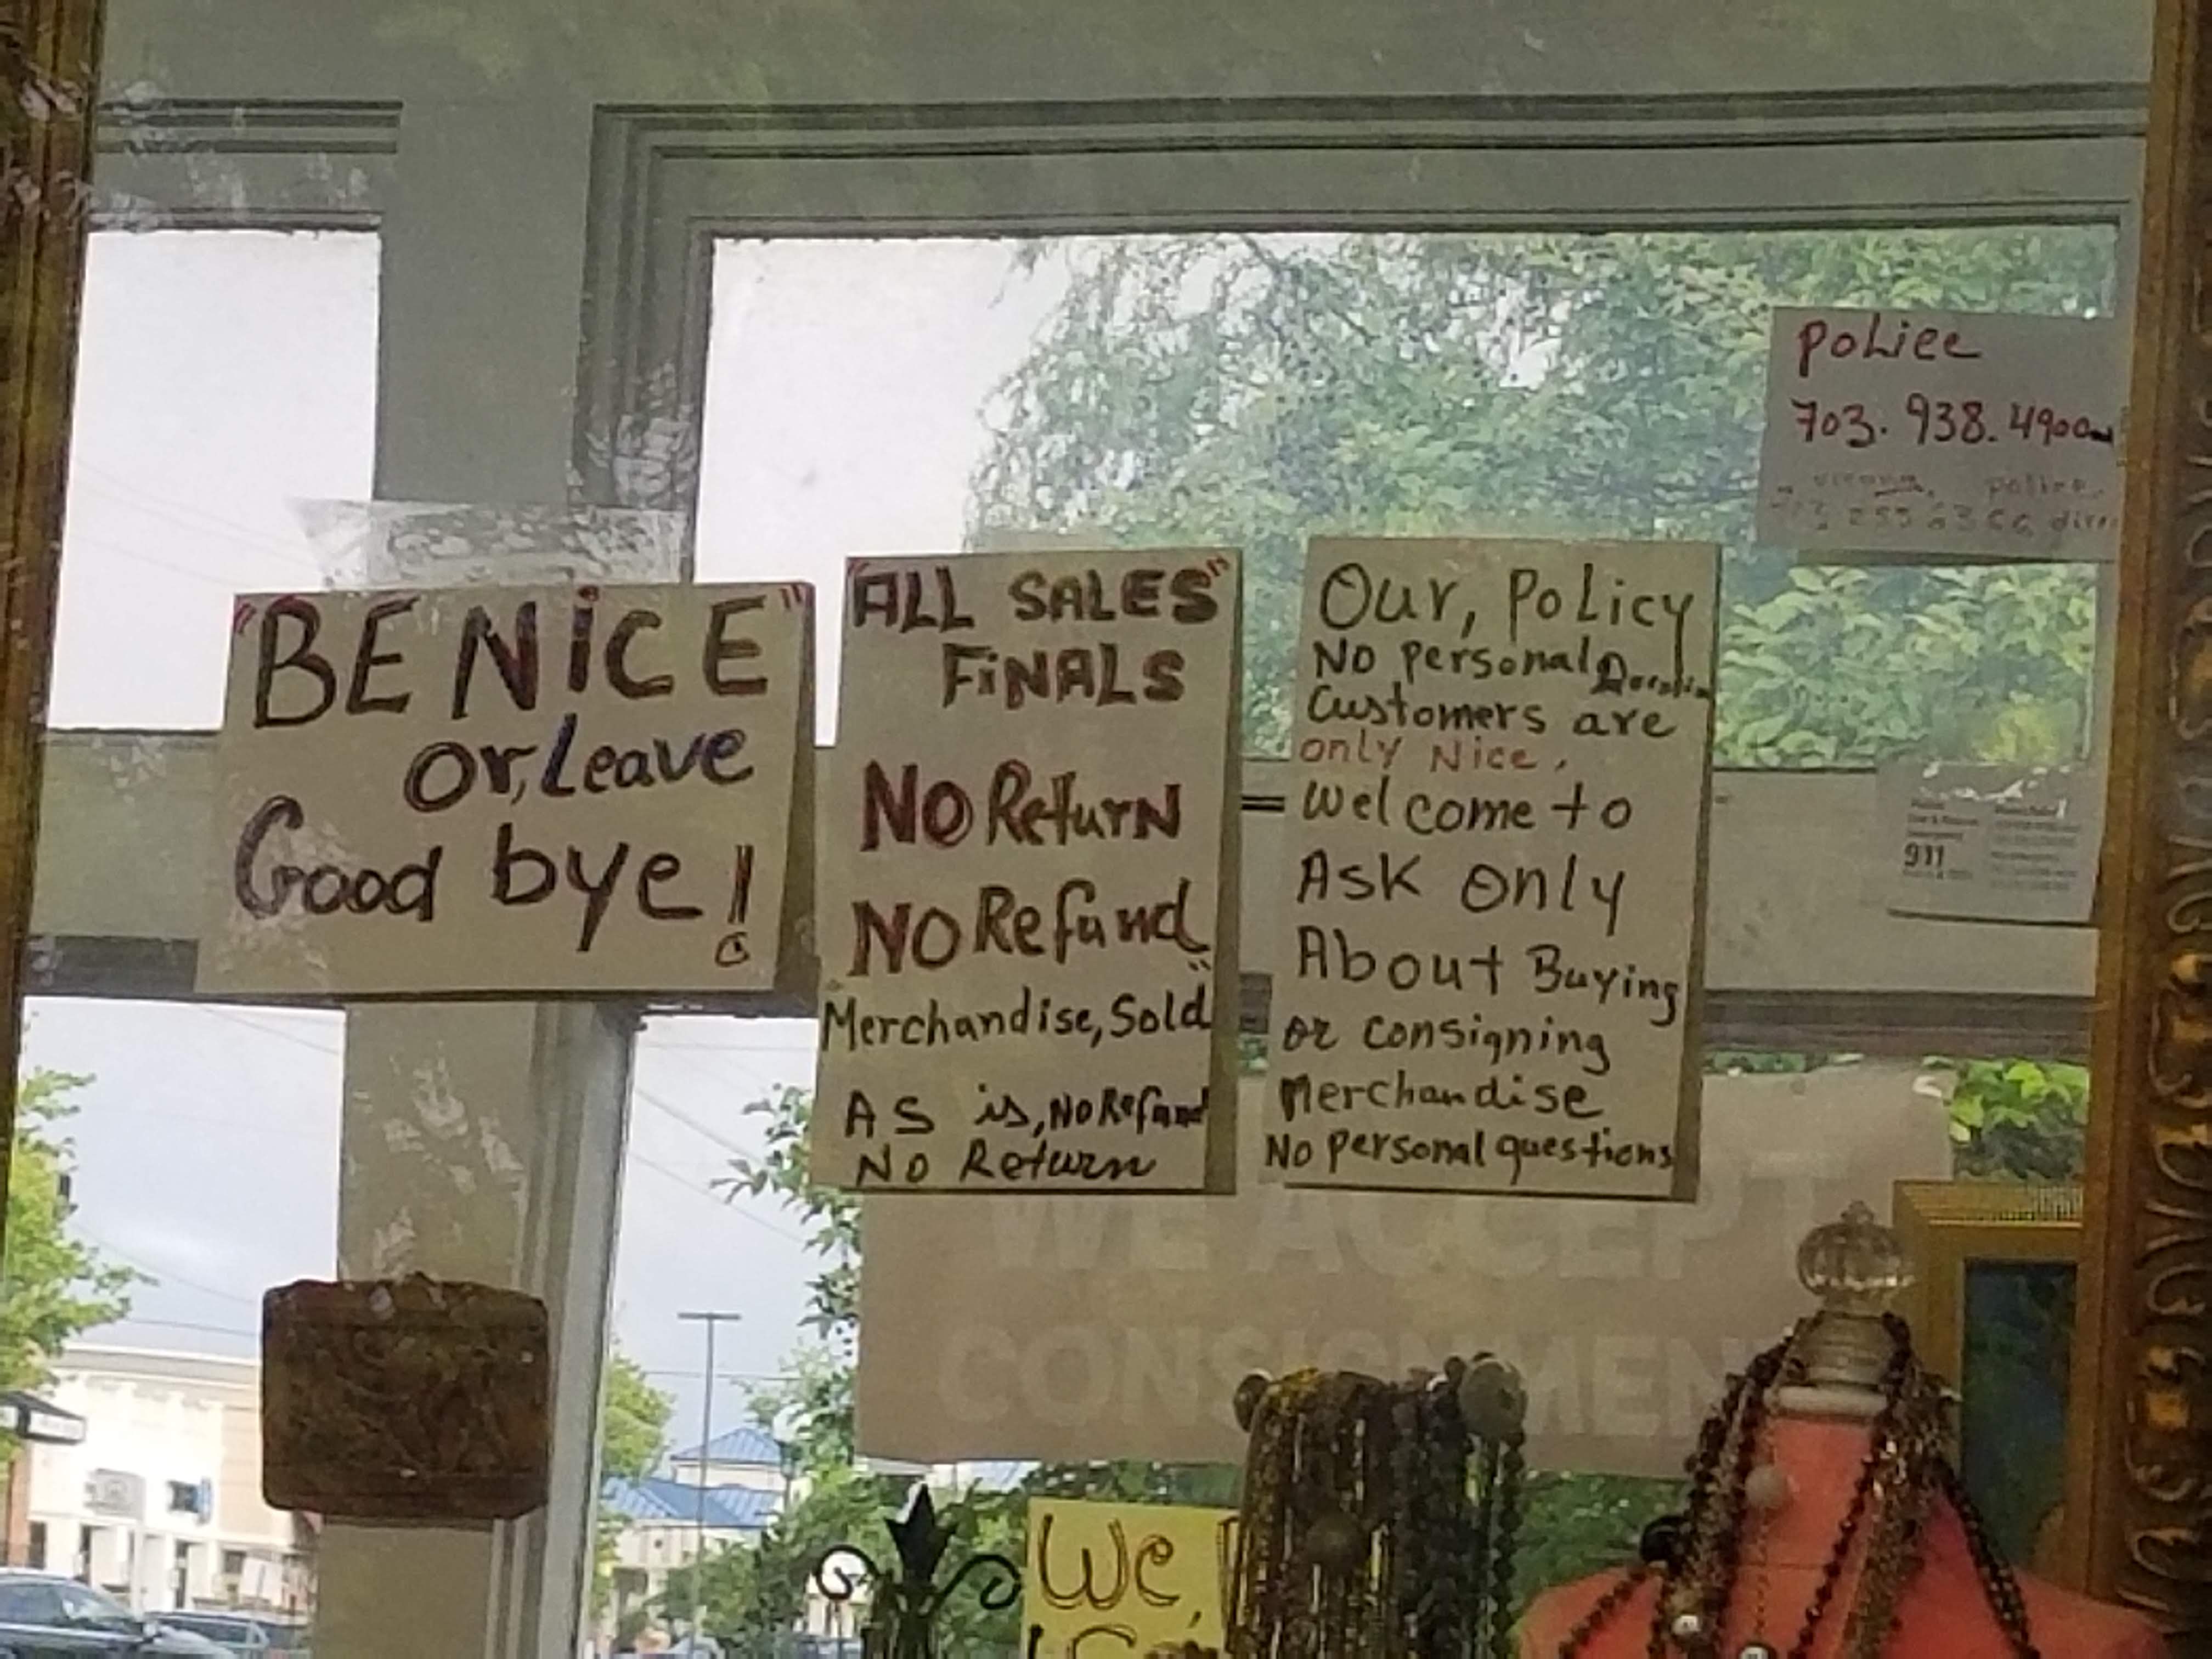 "BE NiCE"
or, Leave
Good bye!
"ALL SALES"
FiNALS
NO Return
NO Refund
"Merchandise, Sold"
AS is, No Refund
No Return
Our, Policy
No personal
Customers are
only Nice,
= Welcome to
Ask only
About Buying
or consigning
Merchandise
No personal questions
Police
703. 938. 4900
police
911
WE ACCEPT
CONSIGNMEN
We,